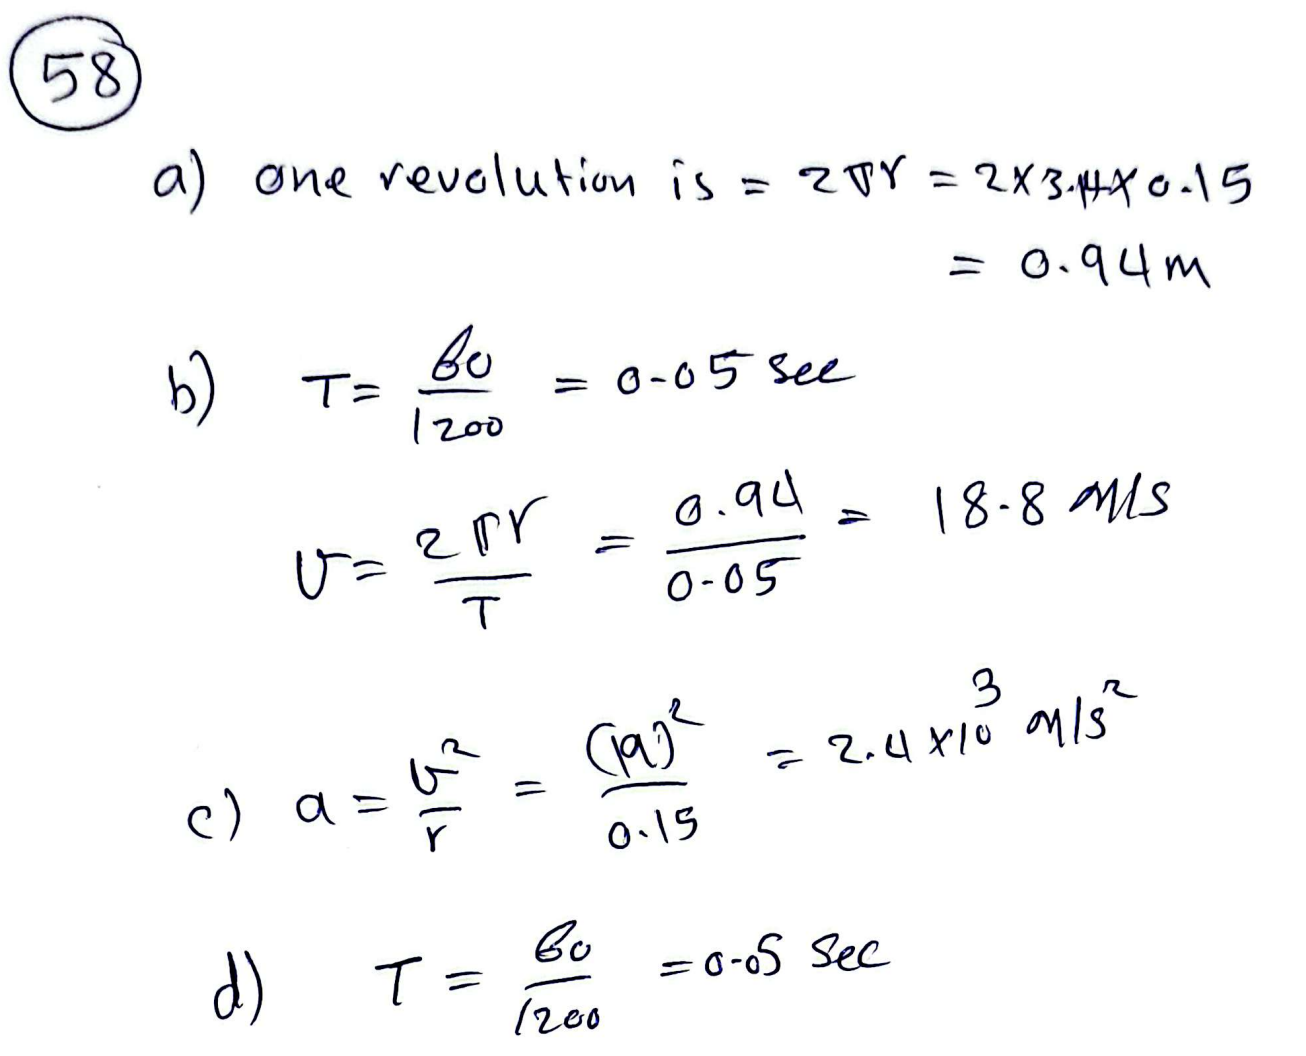 58
a) one revolution is = 2πr = 2×3.14×0.15
= 0.94m
b) T = 60/1200 = 0.05 sec
v = 2πr/T = 0.94/0.05 = 18.8 m/s
c) a = v²/r = (19)²/0.15 = 2.4×10³ m/s²
d) T = 60/1200 = 0.05 sec